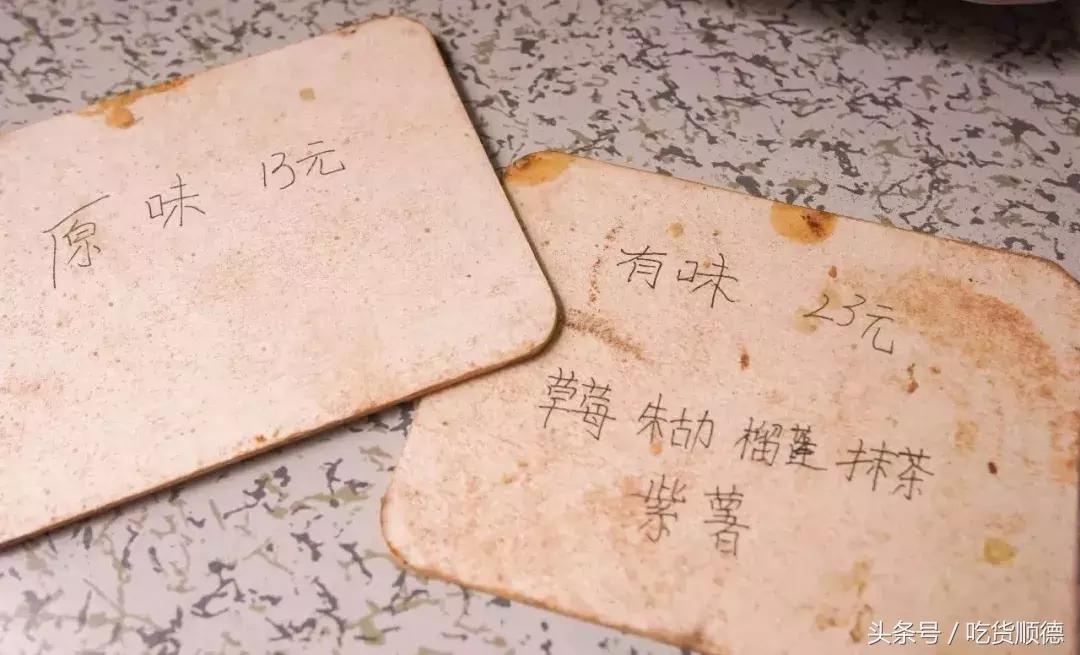 原味 13元
有味 23元
草莓 朱古力 榴莲 抹茶
紫薯
头条号 / 吃货顺德